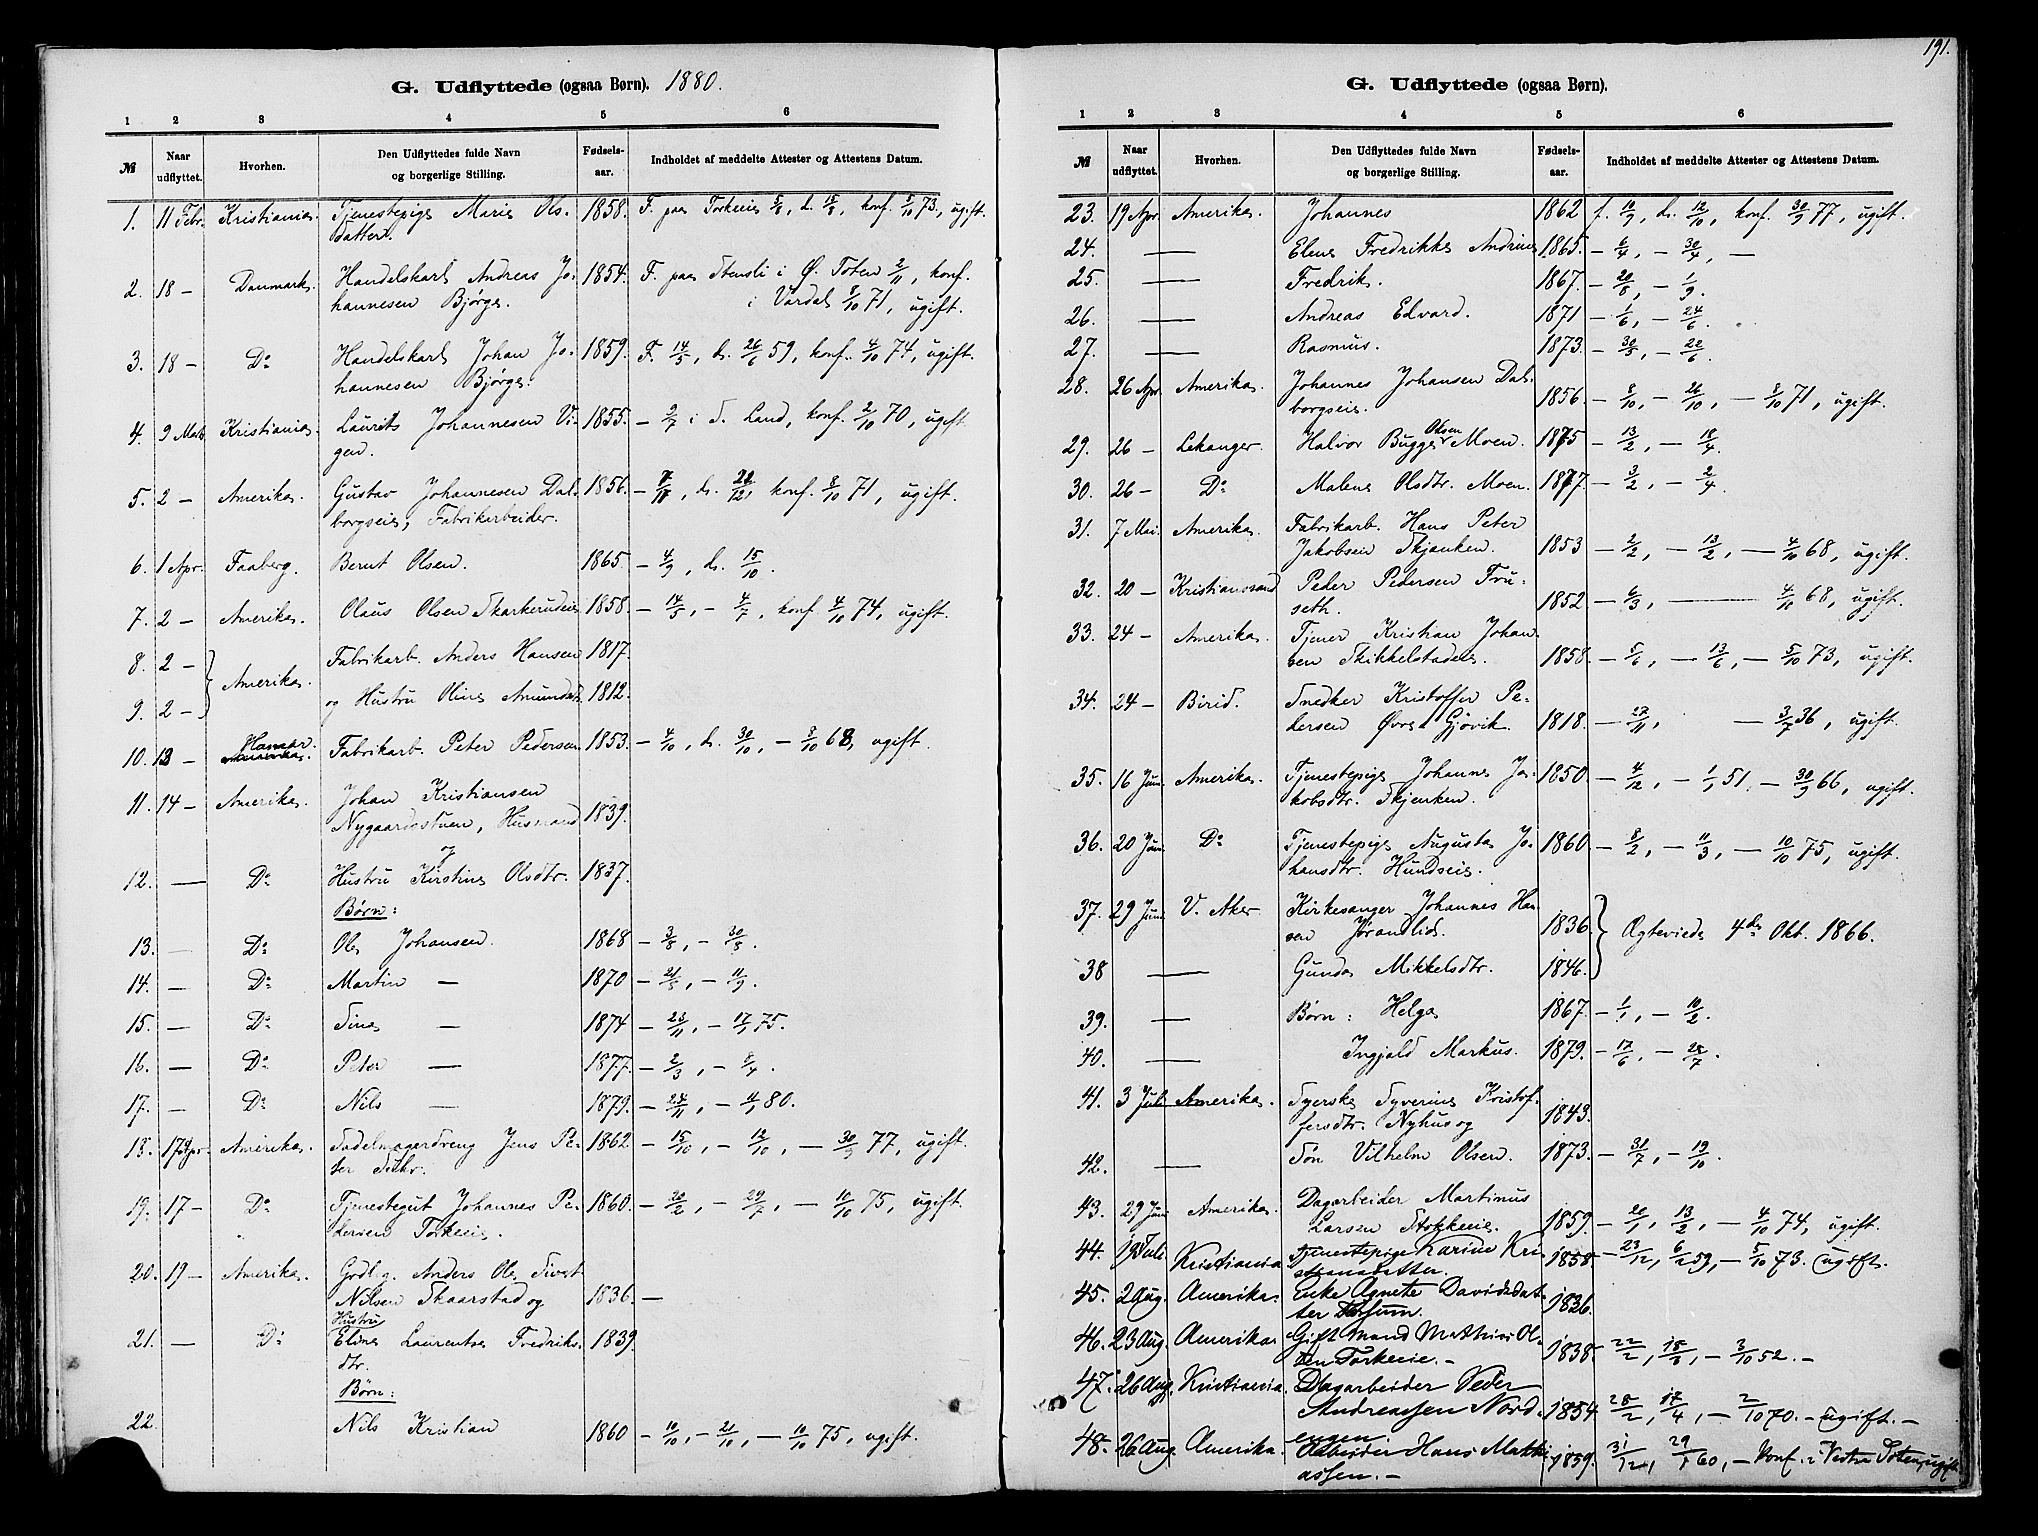 191.
G. Udflyttede (ogsaa Børn). 1880.
1 2 3 4 5 6
№ Naar udflyttet. Hvorhen. Den Udflyttedes fulde Navn og borgerlige Stilling. Fødsels-aar. Indholdet af meddelte Attester og Attestens Datum.
1. 11 Febr. Kristiania. Tjenestepige Marie Ols- 1858. F. paa Torkeeie 5/8, d. 15/8, konf. 5/10 73, ugift.
datter.
2. 18 — Danmark. Handelskarl Andreas Jo- 1854. F. paa Stensli i Ø. Toten 2/11, konf.
hannesen Bjørge. i Vardal 8/10 71, ugift.
3. 18 — Do Handelskarl Johan Jo- 1859. F. 14/5, d. 26/6 59, konf. 4/10 74, ugift.
hannesen Bjørge.
4. 9 Mats Kristiania. Laurits Johannesen Vi- 1855. — 9/7 i S. Land, konf. 2/10 70, ugift
gen.
5. 2 — Amerika. Gustav Johannesen Dal- 1856. — 7/11, d. 20/12, konf. 8/10 71, ugift.
borgseie, Fabrikarbeider.
6. 1 Apr. Faaberg. Bernt Olsen. 1865 — 4/9, d. 15/10.
7. 2 — Amerika. Olaus Olsen Skarkerudeie 1858. — 14/5, — 4/7, konf. 4/10 74, ugift.
8. 2 — Fabrikarb. Anders Hansen 1817.
Amerika.
9. 2 — og Hustru Oline Amundsdtr. 1812.
10. 13 — Hamar. Fabrikarb. Peter Pedersen 1853. — 4/10, d. 30/10, — 8/10 68, ugift.
11. 14 — Amerika. Johan Kristiansen
Nygaardsstuen, Husmand 1839.
og
12. — Do Hustru Kirstine Olsdtr. 1837.
Børn:
13. — Do Ole Johansen. 1868 — 3/5, — 30/5.
14. — Do Martin — 1870 — 21/5, — 11/9.
15. — Do Sine — 1874 — 23/11, — 17/1 75.
16. — Do Peter — 1877. — 2/3, — 8/4.
17. — Do Nils — 1879. — 24/11, — 4/1 80.
18. 17 Apr. Amerika. Sadelmagerdreng Jens Pe- 1862 — 15/10, — 12/10, — 30/9 77, ugift.
ter Suhr.
19. 17 — Do Tjenestegut Johannes Pe- 1860. — 20/2, — 29/7, — 10/10 75, ugift.
dersen Torkeeie.
20. 19 — Amerika. Grdbg. Anders Ole Sivert
Nilsen Skaarstad og 1836. —
Hustru
21. — Do Eline Laurentse Fredriks- 1839.
dtr.
Børn:
22. Nils Kristian 1860 — 10/10, — 21/10, — 10/10 75, ugift.
G. Udflyttede (ogsaa Børn).
1 2 3 4 5 6
№ Naar udflyttet. Hvorhen. Den Udflyttedes fulde Navn og borgerlige Stilling. Fødsels-aar. Indholdet af meddelte Attester og Attestens Datum.
23. 19 Apr. Amerika. Johannes 1862 f. 10/9, d. 12/10, konf. 30/9 77, ugift.
24. — Elene Fredrikke Andrine 1865. — 6/4, — 30/4, —
25. — Fredrik. 1867. — 20/8, — 1/9.
26. — Andreas Edvard. 1871 — 1/6, — 24/6.
27. — Rasmus. 1873. — 30/5, — 22/6.
28. 26 Apr. Amerika. Johannes Johansen Dal-
borgseie. 1856. — 8/10, — 26/10, — 8/10 71, ugift.
29. 26 — Lekanger. Halvor Bugge Olsen Moen. 1875 — 13/2, — 18/4.
30. 26 — Do Malene Olsdtr. Moen. 1877. — 3/2, — 2/4.
31. 7 Mai. Amerika. Fabrikarb. Hans Peter
Jakobsen Skjenken. 1853 — 2/2, — 13/2, — 4/10 68, ugift.
32. 20 — Kristianssand Peder Pedersen Tru-
seth. 1852 — 6/3, — 4/10 68, ugift.
33. 24 — Amerika. Tjener Kristian Johan-
sen Skikkelstadeie. 1858. — 5/6, — 13/6, — 5/10 73, ugift.
34. 24 — Birid. Snedker Kristoffer Pe-
dersen Øvre Gjøvik. 1818. — 27/11, — 3/7 36, ugift.
35. 16 Juni. Amerika. Tjenestepige Johanne Ja- 1850. — 4/12, — 1/1 51. — 30/9 66, ugift.
kobsdtr. Skjenken.
36. 20 Juni. Do Tjenestepige Augusta Jo- 1860 — 8/2, — 11/3, — 10/10 75, ugift.
hansdtr. Hundseie.
37. 29 Juni. V. Aker. Kirkesanger Johannes Han-
sen Jørandlid. 1836. Ægteviede 4de Okt. 1866.
38 — Gunda Mikkelsdtr. 1846.
39. — Børn: Helga 1867. — 1/1, — 10/2.
40. — Ingjald Markus. 1879. — 17/6, — 28/7.
41. 3 Juli Amerika. Syerske Syverine Kristof-
fersdtr. Nyhus og 1843.
42. — Søn Vilhelm Olsen. 1873. — 31/7, — 19/10.
43. 29 Juni Amerika. Dagarbeider Martinus
Larsen Stokkeeie. 1859. — 20/1, 13/2, — 4/10 74, ugift.
44. 19 Juli. Kristiania Tjenestepige Karine Kri- 1858. — 23/12, 6/2 59, — 5/10 73. Ugift.
stiansdatter.
45. 2 Aug. Amerika. Enke Agnete Davidsdat- 1826.
ter
46. 23 Aug. Amerika Gift Mand Mathias Ol-
sen Torkeeie. — 1838. 22/2, 15/3, — 3/10 52. —
47. 26 Aug. Kristiania. Dagarbeider Peder
Andreassen Nord- 1854 28/2, 17/4, — 2/10 70. — ugift. —
engen.
48. 26 Aug. Amerika. Arbeider Hans Mathi- 1859. 31/12, 29/1 60, — Konf. i Vestre Toten, ugift
assen. —